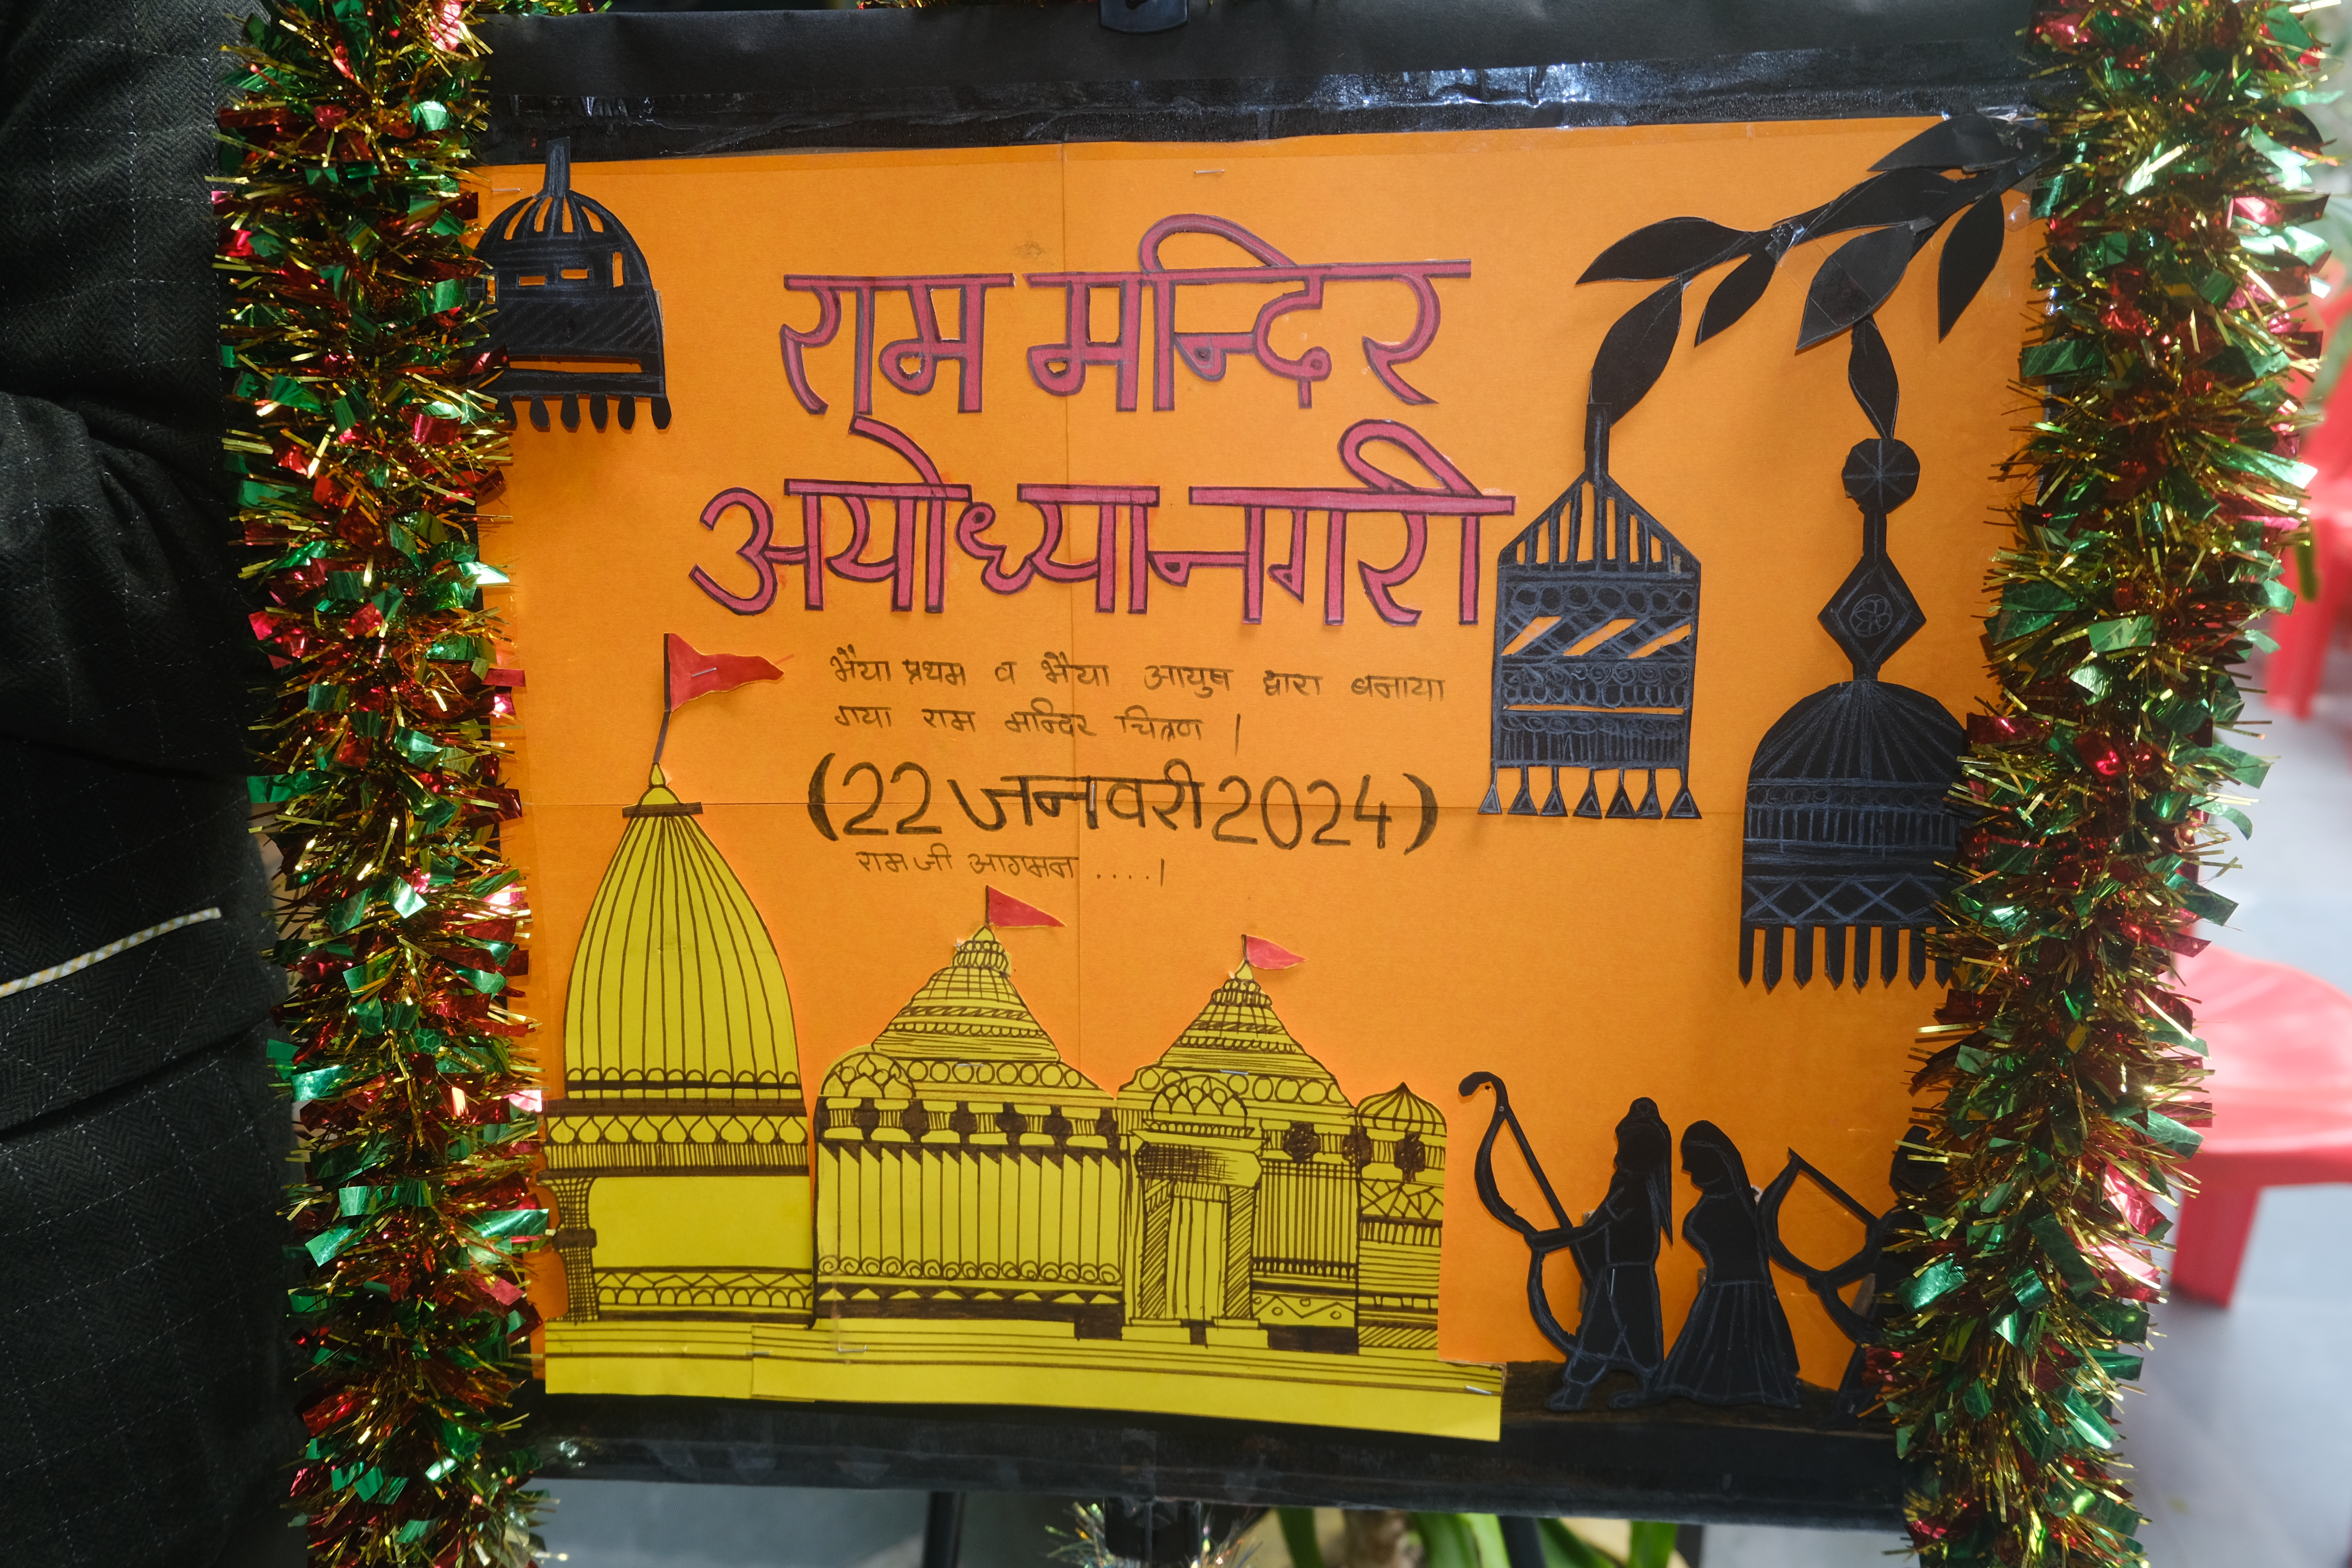 राम मन्दिर
अयोध्यानगरी
भैया प्रथम व भैया आयुष द्वारा बनाया
गया राम मन्दिर चित्रण |
(22 जनवरी 2024)
राम जी आगमन ....|